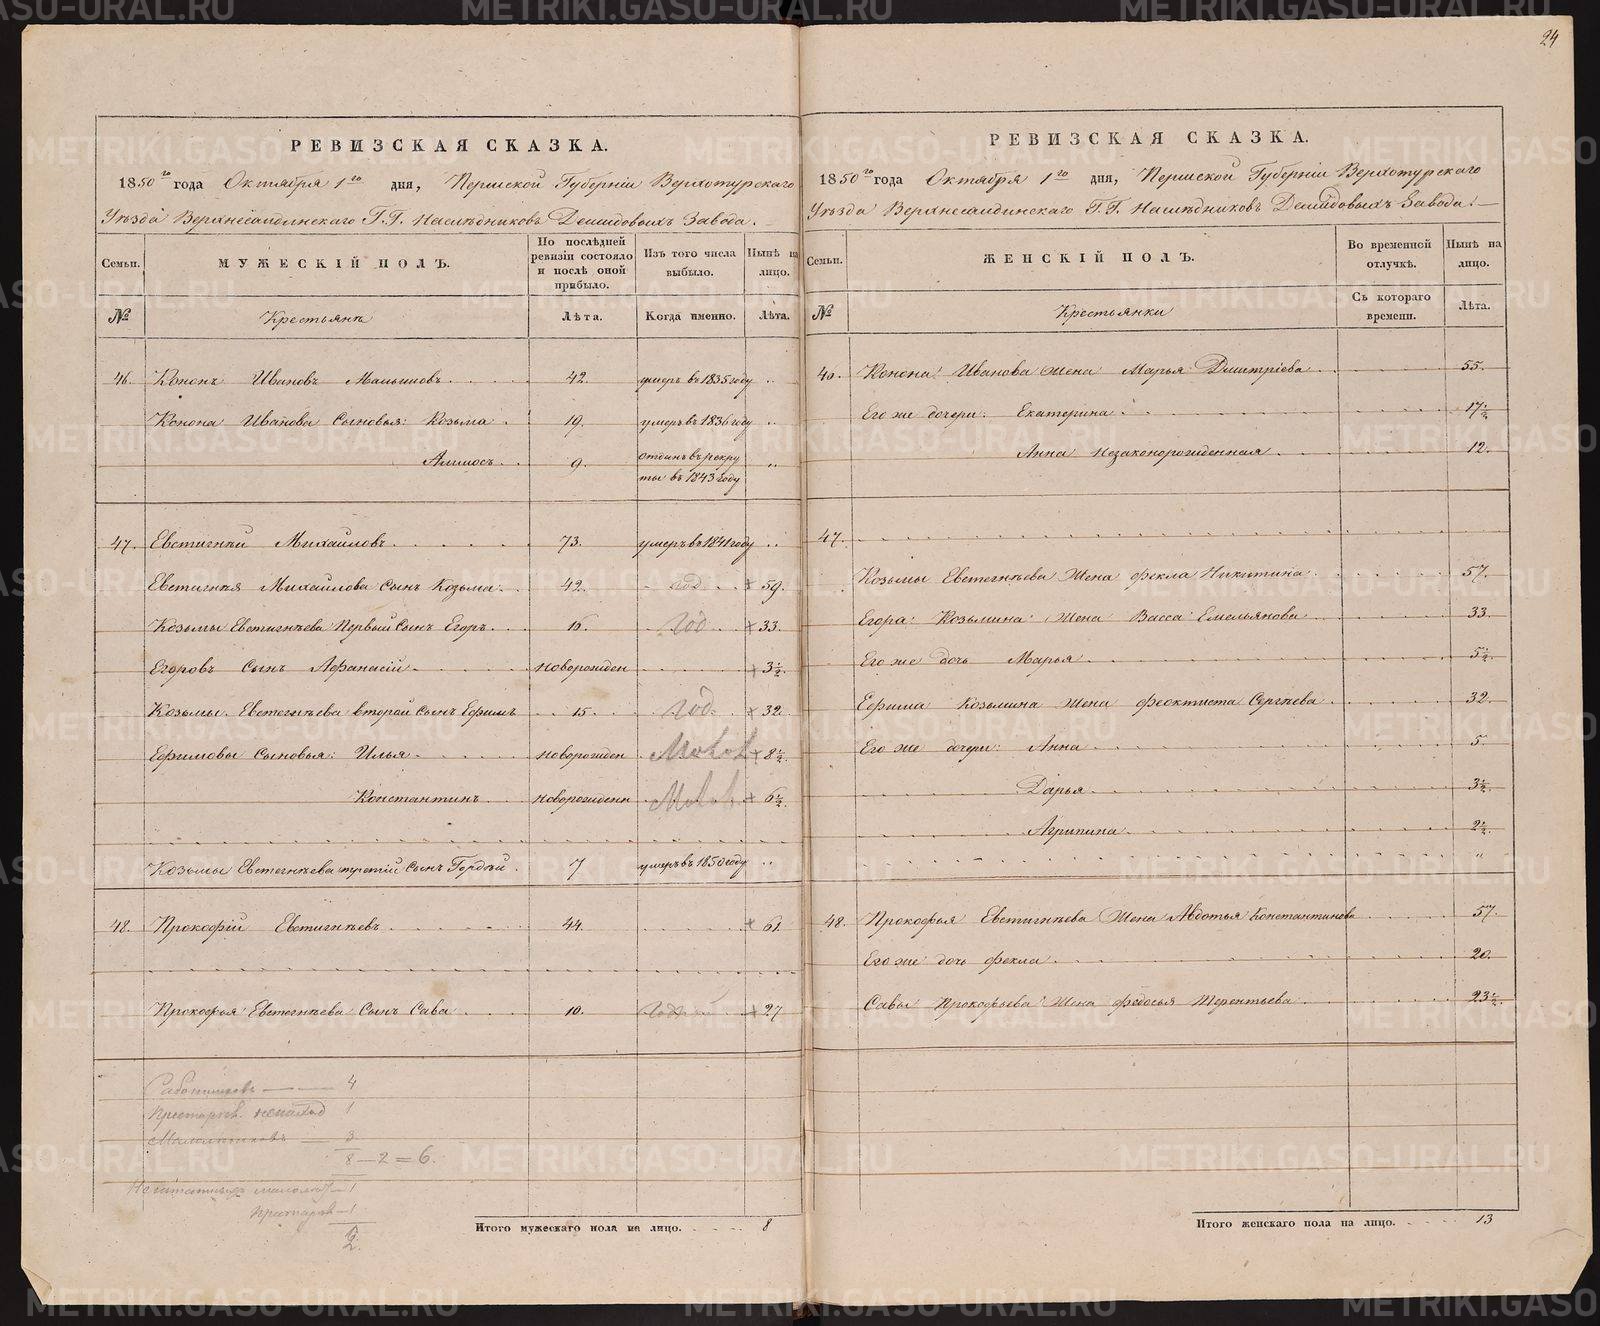 24
РЕВИЗСКАЯ СКАЗКА.
1850го года Октября 1го дня, Пермской Губерніи Верхотурскаго
Уѣзда Верхнесалдинскаго Г.Г. Наслѣдниковъ Демидовыхъ Завода.
Семьи. МУЖЕСКІЙ ПОЛЪ. По послѣдней ревизіи состояло и послѣ оной прибыло. Изъ того числа выбыло. Нынѣ на лицо.
№ Крестьянъ Лѣта. Когда именно. Лѣта.
46. Кононъ Ивановъ 42. умеръ въ 1835 году „
Конона Иванова Сыновья: Козьма 19. умеръ въ 1836 году „
Аммосъ 9. отданъ въ рекруты въ 1843 году „
47. Евстигнѣй Михайловъ 73. умеръ въ 1841 году „
Евстигнѣя Михайлова Сынъ Козьма 42. год × 59.
Козьмы Евстигнѣева Первый Сынъ Егоръ 16. Год × 33.
Егоровъ Сынъ Афанасій новорожден × 3½.
Козьмы Евстегнѣева второй Сынъ Ефимъ 15. Год × 32.
Ефимовы Сыновья: Илья новорожден × 8½.
Константинъ новорожденн × 6½.
Козьмы Евстегнѣева третій Сынъ Гордѣй 7 умеръ въ 1850 году „
48. Прокофій Евстигнѣевъ 44. × 61.
Прокофья Евстегнѣева Сынъ Сава 10. × 27
Работниковъ — 4
Престарѣл. 1
Малолѣтковъ — 3
8 – 2 = 6.
– 1
– 1
2.
Итого мужескаго пола на лицо. 8
РЕВИЗСКАЯ СКАЗКА.
1850го года Октября 1го дня, Пермской Губерніи Верхотурскаго
Уѣзда Верхнесалдинскаго Г.Г. Наслѣдниковъ Демидовыхъ Завода.
Семьи. ЖЕНСКІЙ ПОЛЪ. Во временной отлучкѣ. Нынѣ на лицо.
№ Крестьянки Съ котораго времени. Лѣта.
46. Конона Иванова Жена Марья Дмитріева 55.
Его же дочери: Екатерина 17½
Анна Незаконорожденная 12.
47.
Козьмы Евстегнѣева Жена Фекла Никитина 57.
Егора Козьмина Жена Васса Емельянова 33.
Его же дочь Марья 5½.
Ефима Козьмина Жена Феоктиста Сергѣева 32.
Его же дочери: Анна 5
Дарья 3½.
Агрипина 2½.
„
48. Прокофья Евстигнѣева Жена Авдотья Константинова 57.
Его же дочь Фекла 20.
Савы Прокофьева Жена Федосья Терентьева 23½.
Итого женскаго пола на лицо. 13
METRIKI.GASO-URAL.RU